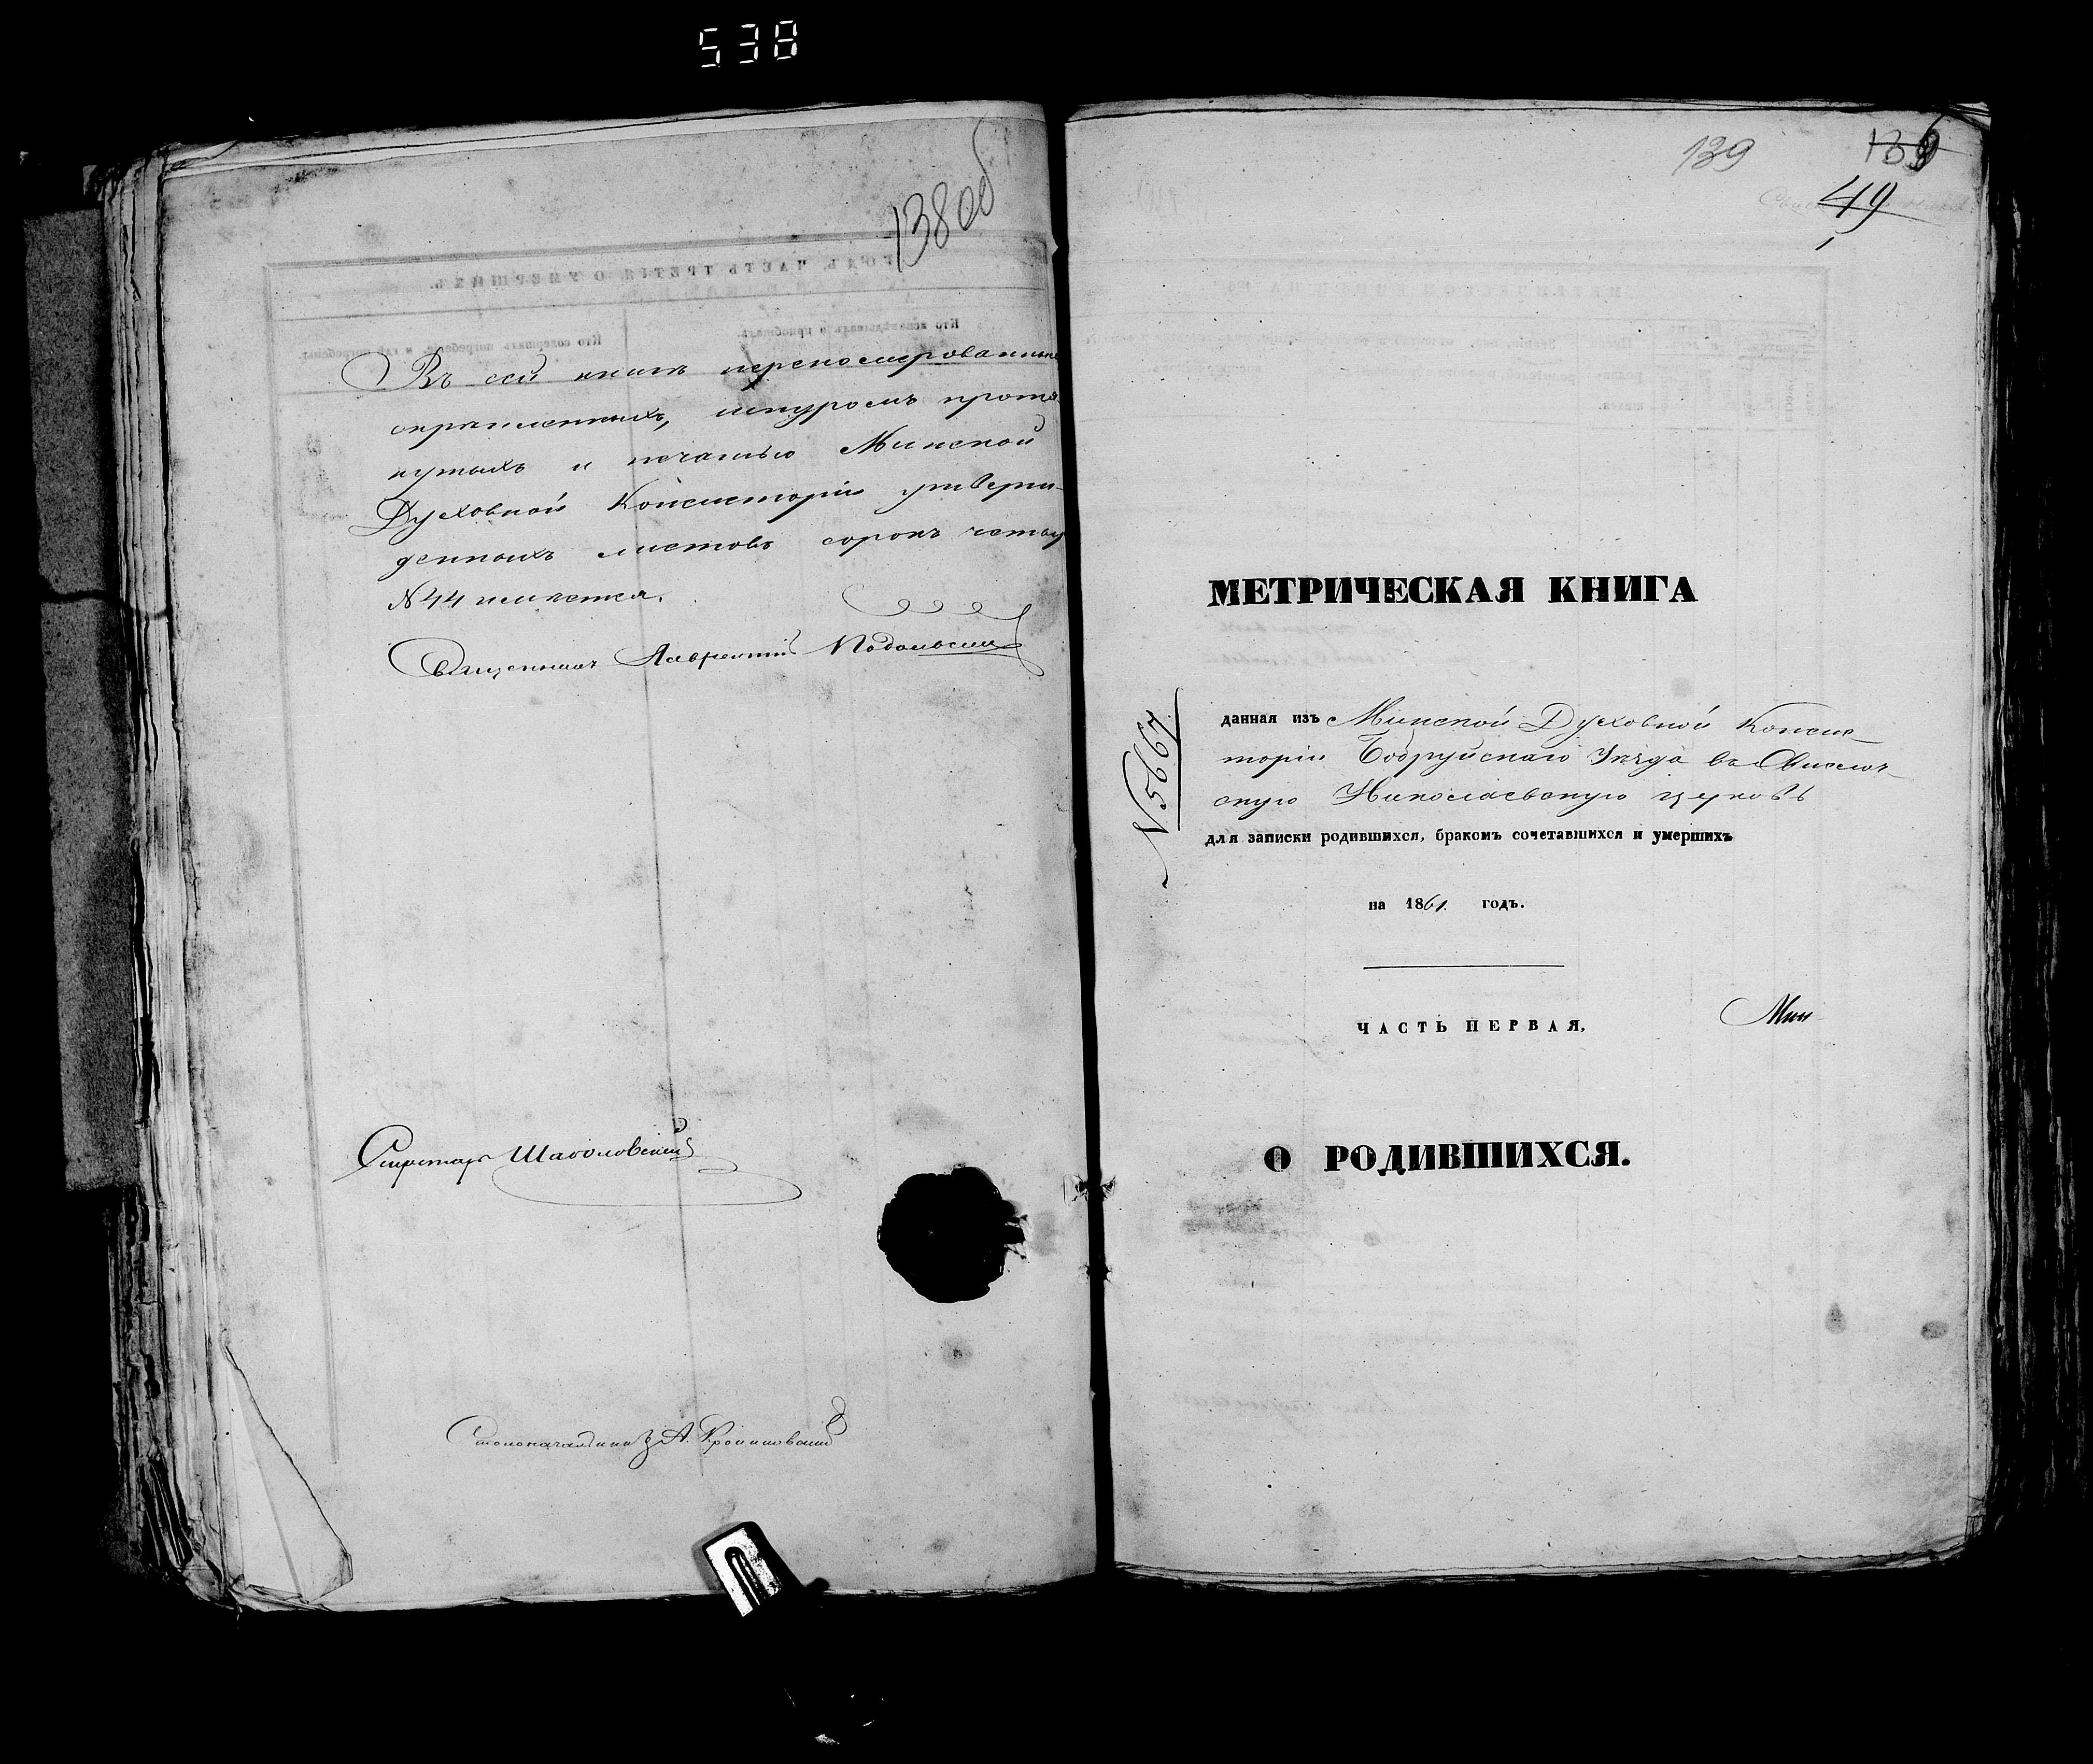 538
138об
Въ сей книгѣ перенолерованныхъ
скрѣпленныхъ, шнуромъ протя-
нутыхъ и печатью Минской
Духовной Консисторіи утверж-
денныхъ листовъ сорокъ четыр
№ 44 имѣется.
Священникъ Лаврентій Подольскій
Секретарь Шаболовскій
Столоначальникъ А.
139
139
49
1
МЕТРИЧЕСКАЯ КНИГА
№5667
данная изъ Минской Духовной Консис-
торіи Бобруйскаго Уѣзда въ Свислоч-
скую Николаевскую церковь
для записки родившихся, бракомъ сочетавшихся и умершихъ
на 1861. годъ.
ЧАСТЬ ПЕРВАЯ,
Мин
О РОДИВШИХСЯ.